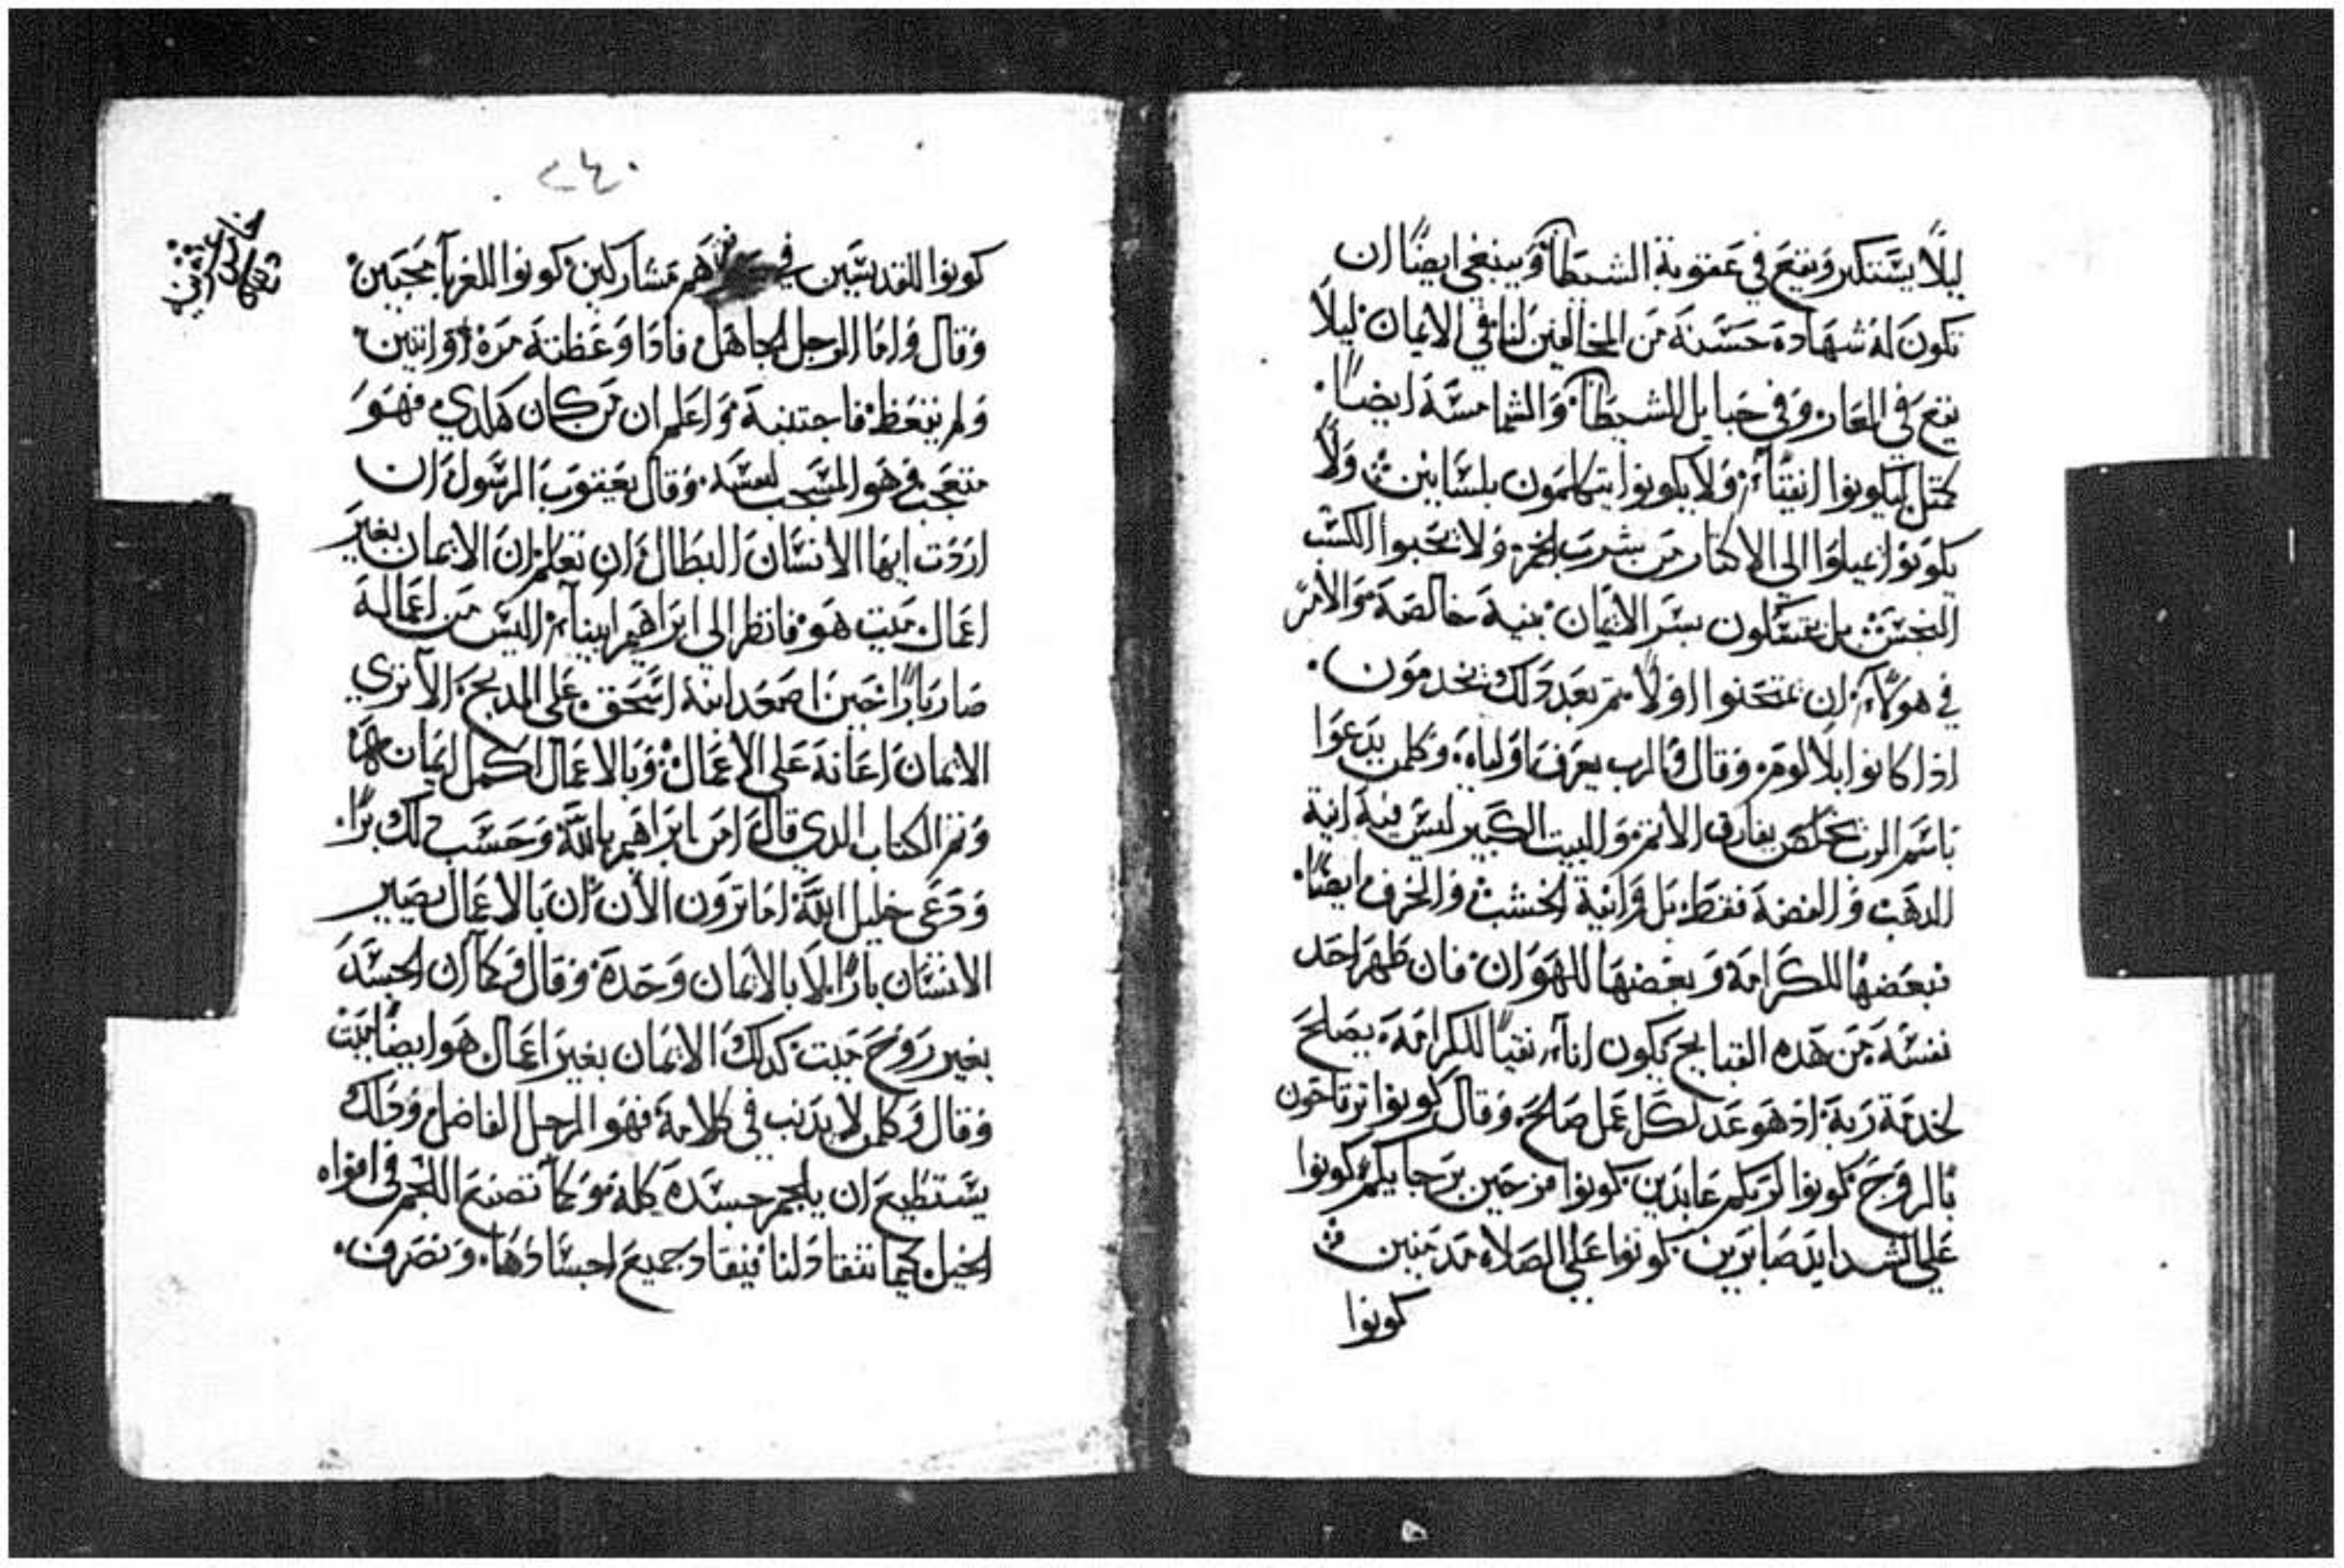 ليلًا يستكبر ويقع في عقوبة الشيطان وينبغي ايضًا ان
تكون له شهادة حسنة من المخالفين لنا في الايمان ليلًا
يقع في العار وفي حبايل الشيطان والشمامسة ايضًا
كمثل ليكونوا انقيآء ولا يكونوا يتكلمون بلسانين ولا
يكونوا يميلوا الي الاكثار من شرب الخمر ولا تحبوا الكسب
النجس بل يمسكون بسر الايمان بنية خالصة والامر
في هولآء ان يمتحنوا اولًا ثم بعد دلك يخدمون
اذا كانوا بلا لوم وقال والرب يعرف اولياه وكلمن يدعوا
باسم الرب مخلص يفارق الاثم والبيت الكبير ليس فيه انية
الدهب والفضة فقط بل وانية الخشب والخزف ايضًا
فبعضها للكرامة وبعضها للهوان فان طهر احد
نفسه من هده القبايح يكون انآء نقيًا للكرامة يصلح
لخدمة ربه اد هو عد لكل عمل صالح وقال كونوا ترتاحون
بالروح كونوا لربكم عابدين كونوا فرحين برجايكم كونوا
علي الشدايد صابرين كونوا علي الصلاه مدمنين
كونوا
٢٤٠
كونوا للقديسين في هم مشاركين كونوا للغربآ محبين
وقال واما الرجل الجاهل فادا وعظته مرة او اثنين
ولم يتعظ فاجتنبه واعلم ان من كان هكدي فهو
متعجب وهو المشجب لنفسه وقال يعقوب الرسول ان
اردت ايها الانسان البطال ان تعلم ان الايمان بغير
اعمال ميت هو فانظر الي ابراهيم ابينآء اليس من اعماله
صار بارًا حين اصعد ابنه اسحق علي المدبح الا تري
الايمان اعانه علي الاعمال وبالاعمال اكمل ايمانه
وتم الكتاب الدي قال امن ابراهيم بالله وحسب دلك برًا
ودعي خليل الله اما ترون الان ان بالاعمال يصير
الانسان بارًا لا بالايمان وحده وقال وكما ان الجسد
بغير روح ميت كدلك الايمان بغير اعمال هو ايضًا ميت
وقال وكلمن لا يدنب في كلامة فهو الرجل الفاضل ودلك
يستطيع ان يلجم جسده كله وكما تصنع اللجم في افواه
الخيل كيما تنقاد لنا فينقاد جميع اجسادها وتصرف